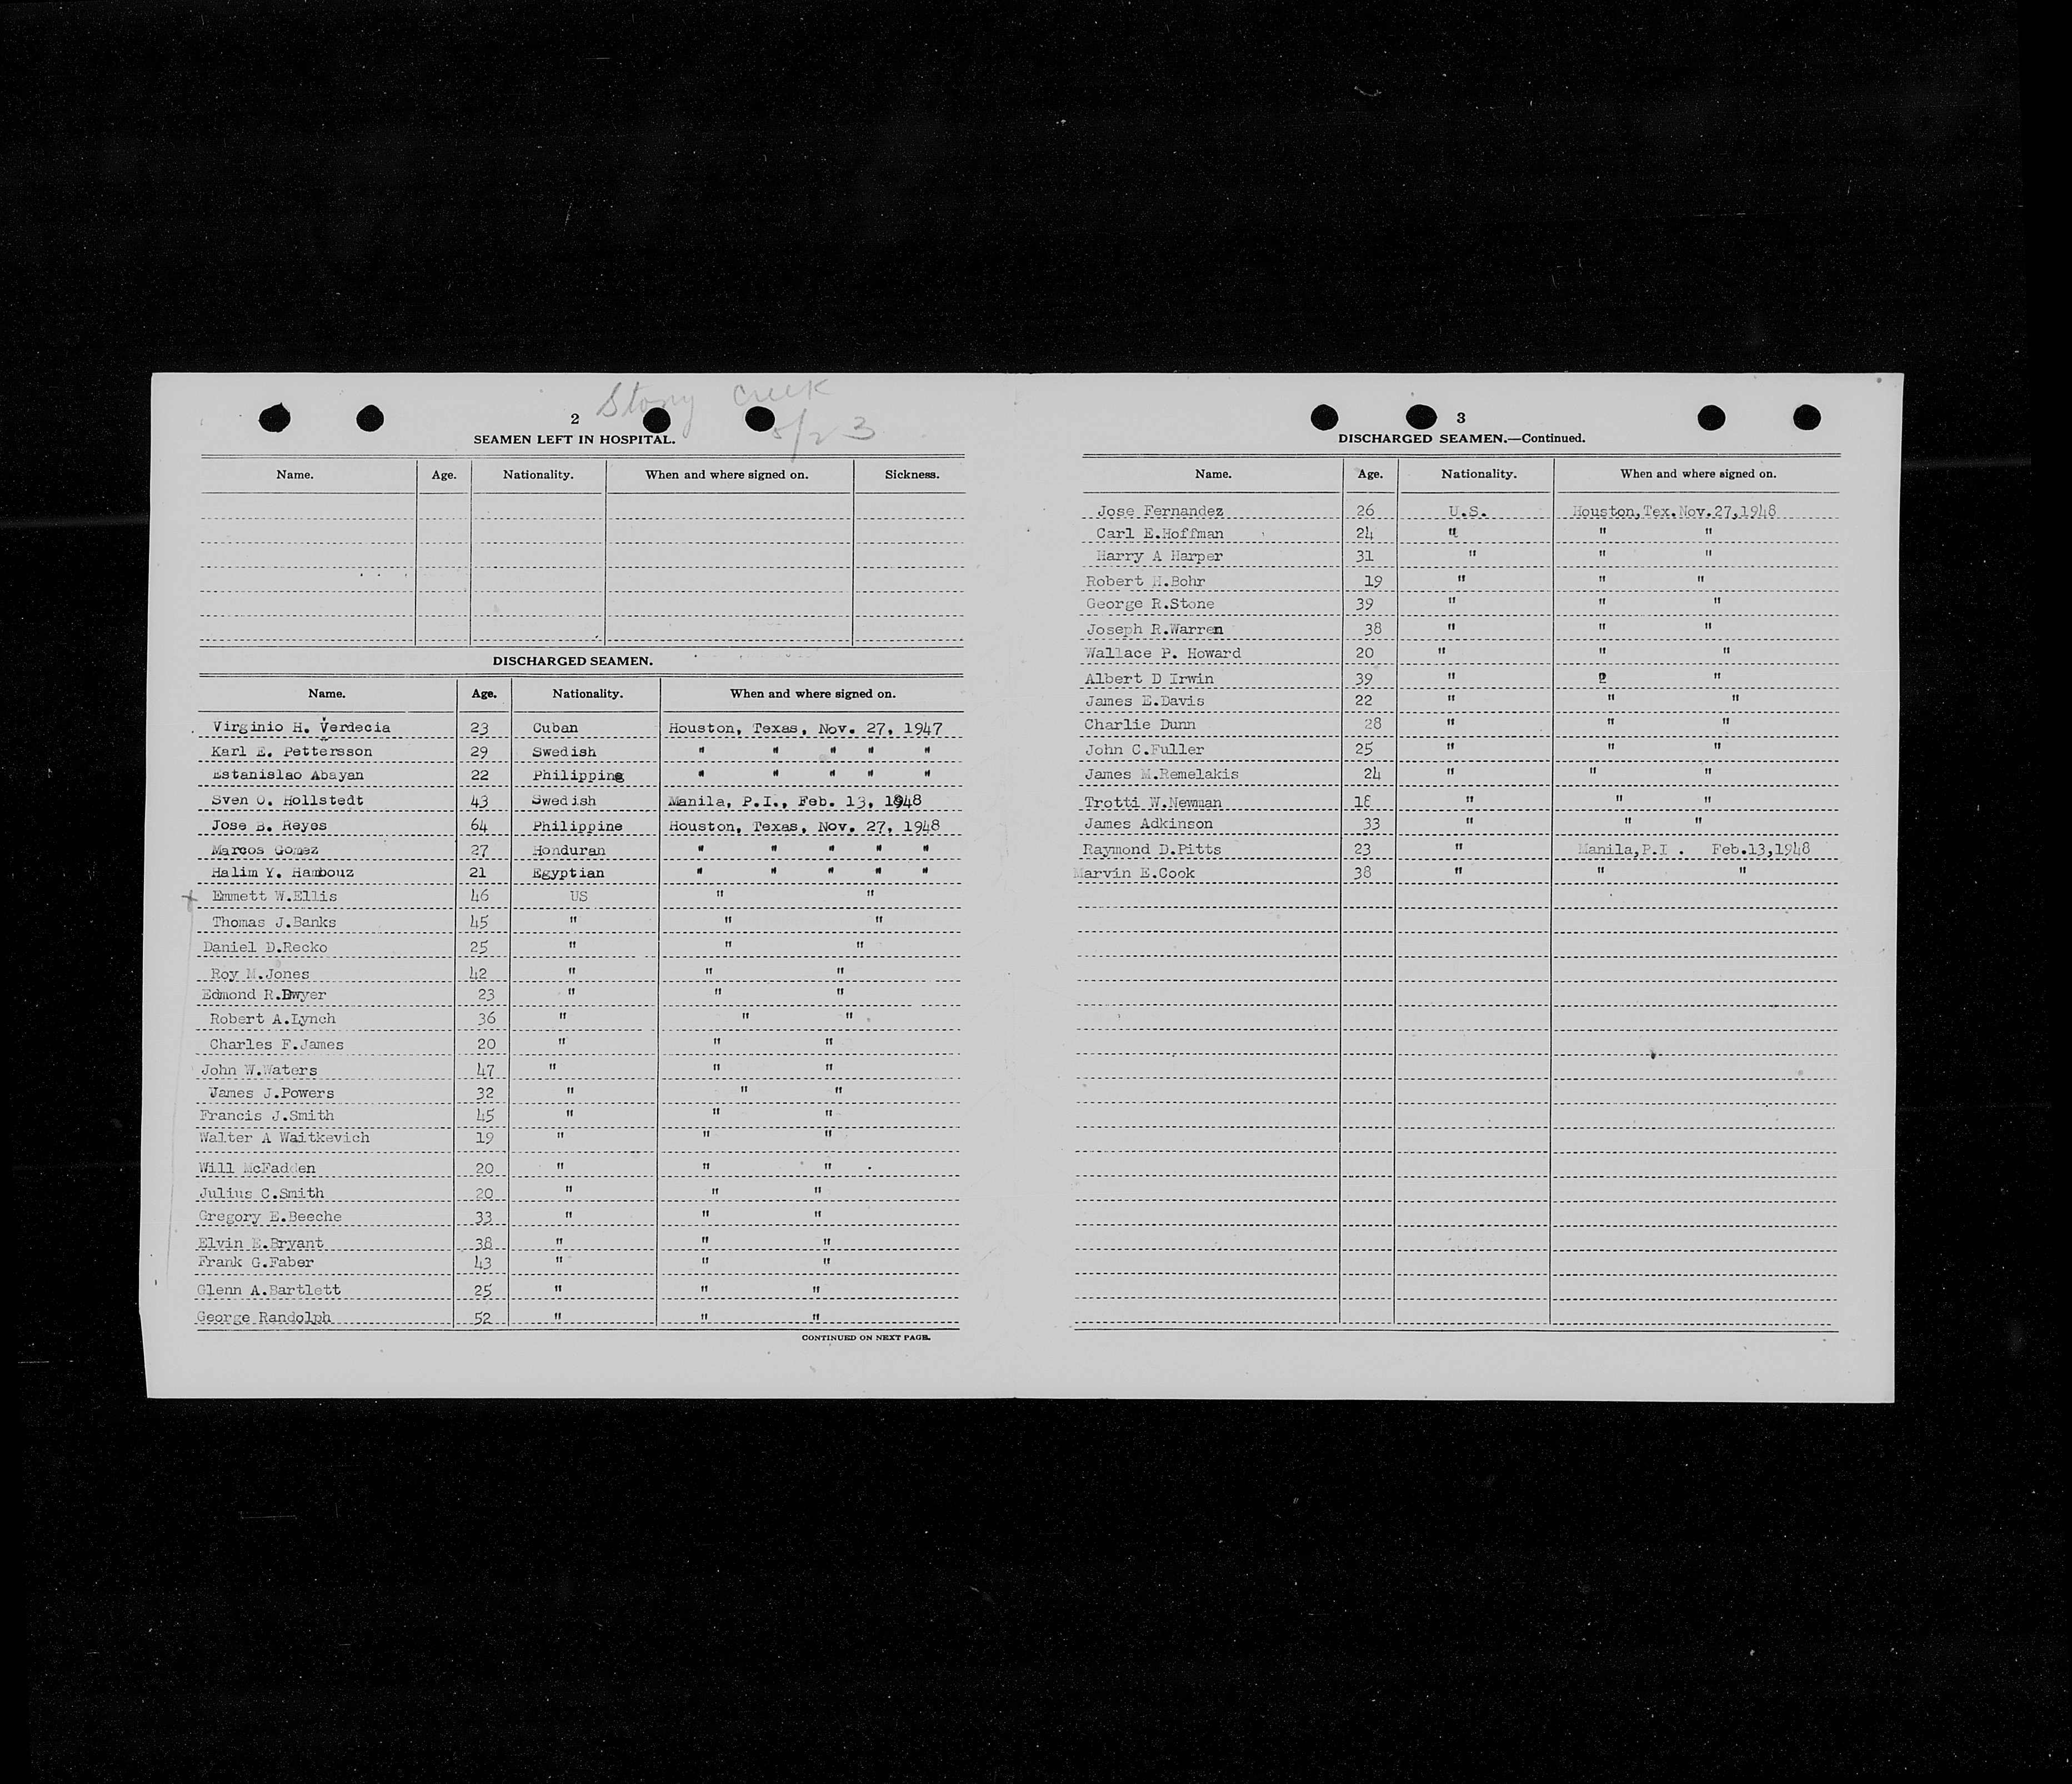 Stony Creek
2
5/23
SEAMEN LEFT IN HOSPITAL.
Name. Age. Nationality. When and where signed on. Sickness.
DISCHARGED SEAMEN.
Name. Age. Nationality. When and where signed on.
Virginio H. Verdecia 23 Cuban Houston, Texas, Nov. 27, 1947
Karl E. Pettersson 29 Swedish " " " " "
Estanislao Abayan 22 Philippine " " " " "
Sven O. Hollstedt 43 Swedish Manila, P.I., Feb. 13, 1948
Jose B. Reyes 64 Philippine Houston, Texas, Nov. 27, 1948
Marcos Gomez 27 Honduran " " " " "
Halim Y. Hambouz 21 Egyptian " " " " "
Emmett W.Ellis 46 US " "
Thomas J.Banks 45 " " "
Daniel D.Recko 25 " " "
Roy M.Jones 42 " " "
Edmond R.Dwyer 23 " " "
Robert A.Lynch 36 " " "
Charles F.James 20 " " "
John W.Waters 47 " " "
James J.Powers 32 " " "
Francis J.Smith 45 " " "
Walter A Waitkevich 19 " " "
Will McFadden 20 " " "
Julius C.Smith 20 " " "
Gregory E.Beeche 33 " " "
Elvin E.Bryant 38 " " "
Frank G.Faber 43 " " "
Glenn A.Bartlett 25 " " "
George Randolph 52 " " "
CONTINUED ON NEXT PAGE.
3
DISCHARGED SEAMEN.—Continued.
Name. Age. Nationality. When and where signed on.
Jose Fernandez 26 U.S. Houston,Tex.Nov.27,1948
Carl E.Hoffman 24 " " "
Harry A Harper 31 " " "
Robert H.Bohr 19 " " "
George R.Stone 39 " " "
Joseph R.Warren 38 " " "
Wallace P. Howard 20 " " "
Albert D Irwin 39 " " "
James E.Davis 22 " " "
Charlie Dunn 28 " " "
John C.Fuller 25 " " "
James M.Remelakis 24 " " "
Trotti W.Newman 18 " " "
James Adkinson 33 " " "
Raymond D.Pitts 23 " Manila,P.I . Feb.13,1948
Marvin E.Cook 38 " " "